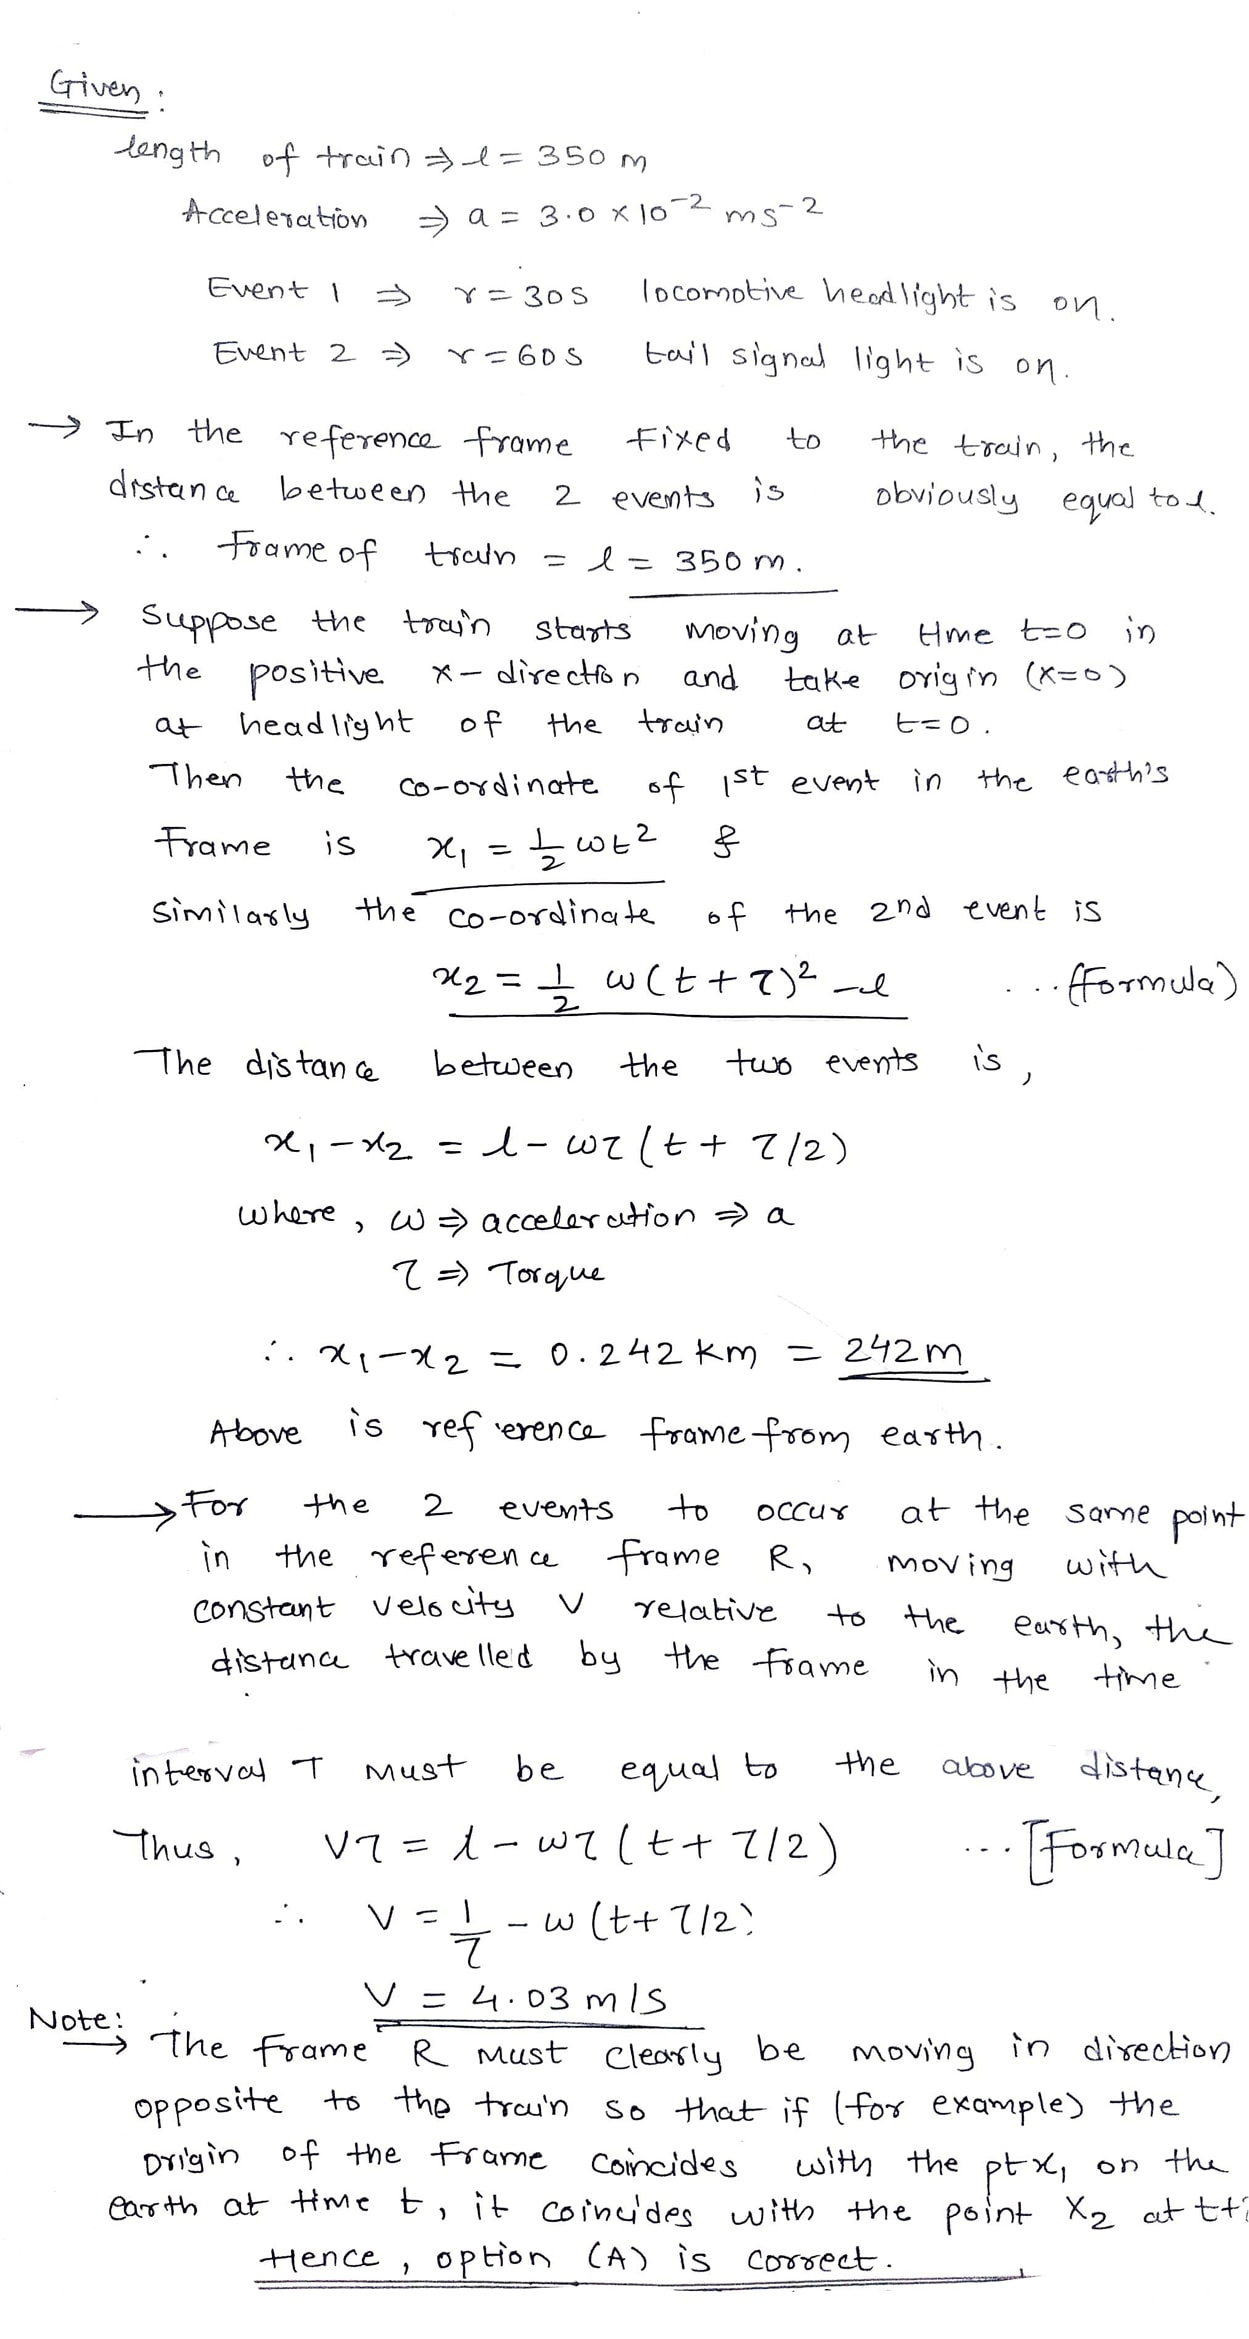 Given :
length of train ⇒ l = 350 m
Acceleration ⇒ a = 3.0 × 10⁻² ms⁻²
Event 1 ⇒ r = 30 s locomotive headlight is on.
Event 2 ⇒ r = 60 s tail signal light is on.
→ In the reference frame fixed to the train, the
distance between the 2 events is obviously equal to l.
∴ frame of train = l = 350 m.
→ Suppose the train starts moving at time t=0 in
the positive x-direction and take origin (x=0)
at headlight of the train at t=0.
Then the co-ordinate of 1st event in the earth's
Frame is x₁ = 1/2 ωt² &
similarly the co-ordinate of the 2nd event is
x₂ = 1/2 ω(t + τ)² - l ...(formula)
The distance between the two events is,
x₁ - x₂ = l - ωτ(t + τ/2)
where, ω ⇒ acceleration ⇒ a
τ ⇒ Torque
∴ x₁ - x₂ = 0.242 km = 242 m
Above is reference frame from earth.
→ For the 2 events to occur at the same point
in the reference frame R, moving with
constant velocity V relative to the earth, the
distance travelled by the frame in the time
interval T must be equal to the above distance,
Thus, Vτ = l - ωτ(t + τ/2) ...[Formula]
∴ V = l/τ - ω(t + τ/2)
V = 4.03 m/s
Note:
→ The frame R must clearly be moving in direction
opposite to the train so that if (for example) the
origin of the Frame coincides with the pt x₁ on the
earth at time t, it coincides with the point X₂ at t+
Hence, option (A) is correct.